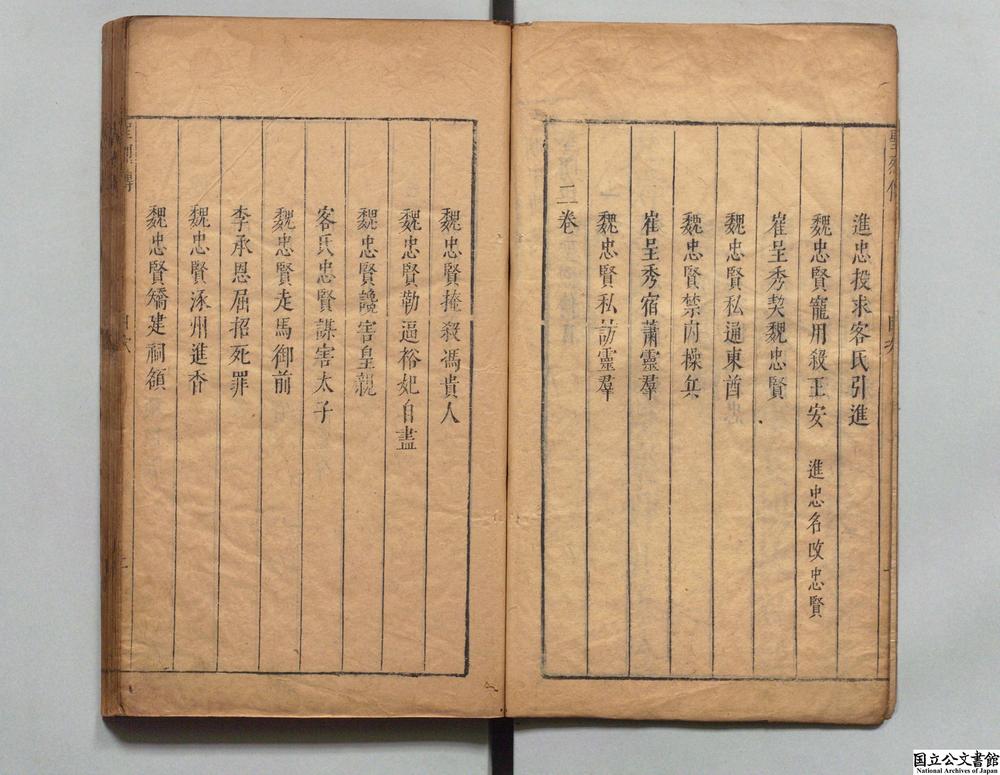 進忠投求客氏引進
魏忠賢寵用殺王安　進忠名改忠賢
崔呈秀契魏忠賢
魏忠賢私通東酋
魏忠賢禁内操兵
崔呈秀宿蕭靈羣
魏忠賢私訪靈羣
二卷
魏忠賢掩殺馮貴人
魏忠賢勒逼裕妃自盡
魏忠賢讒害皇親
客氏忠賢謀害太子
魏忠賢走馬御前
李承恩屈招死罪
魏忠賢涿州進香
魏忠賢矯建祠額
国立公文書館
National Archives of Japan